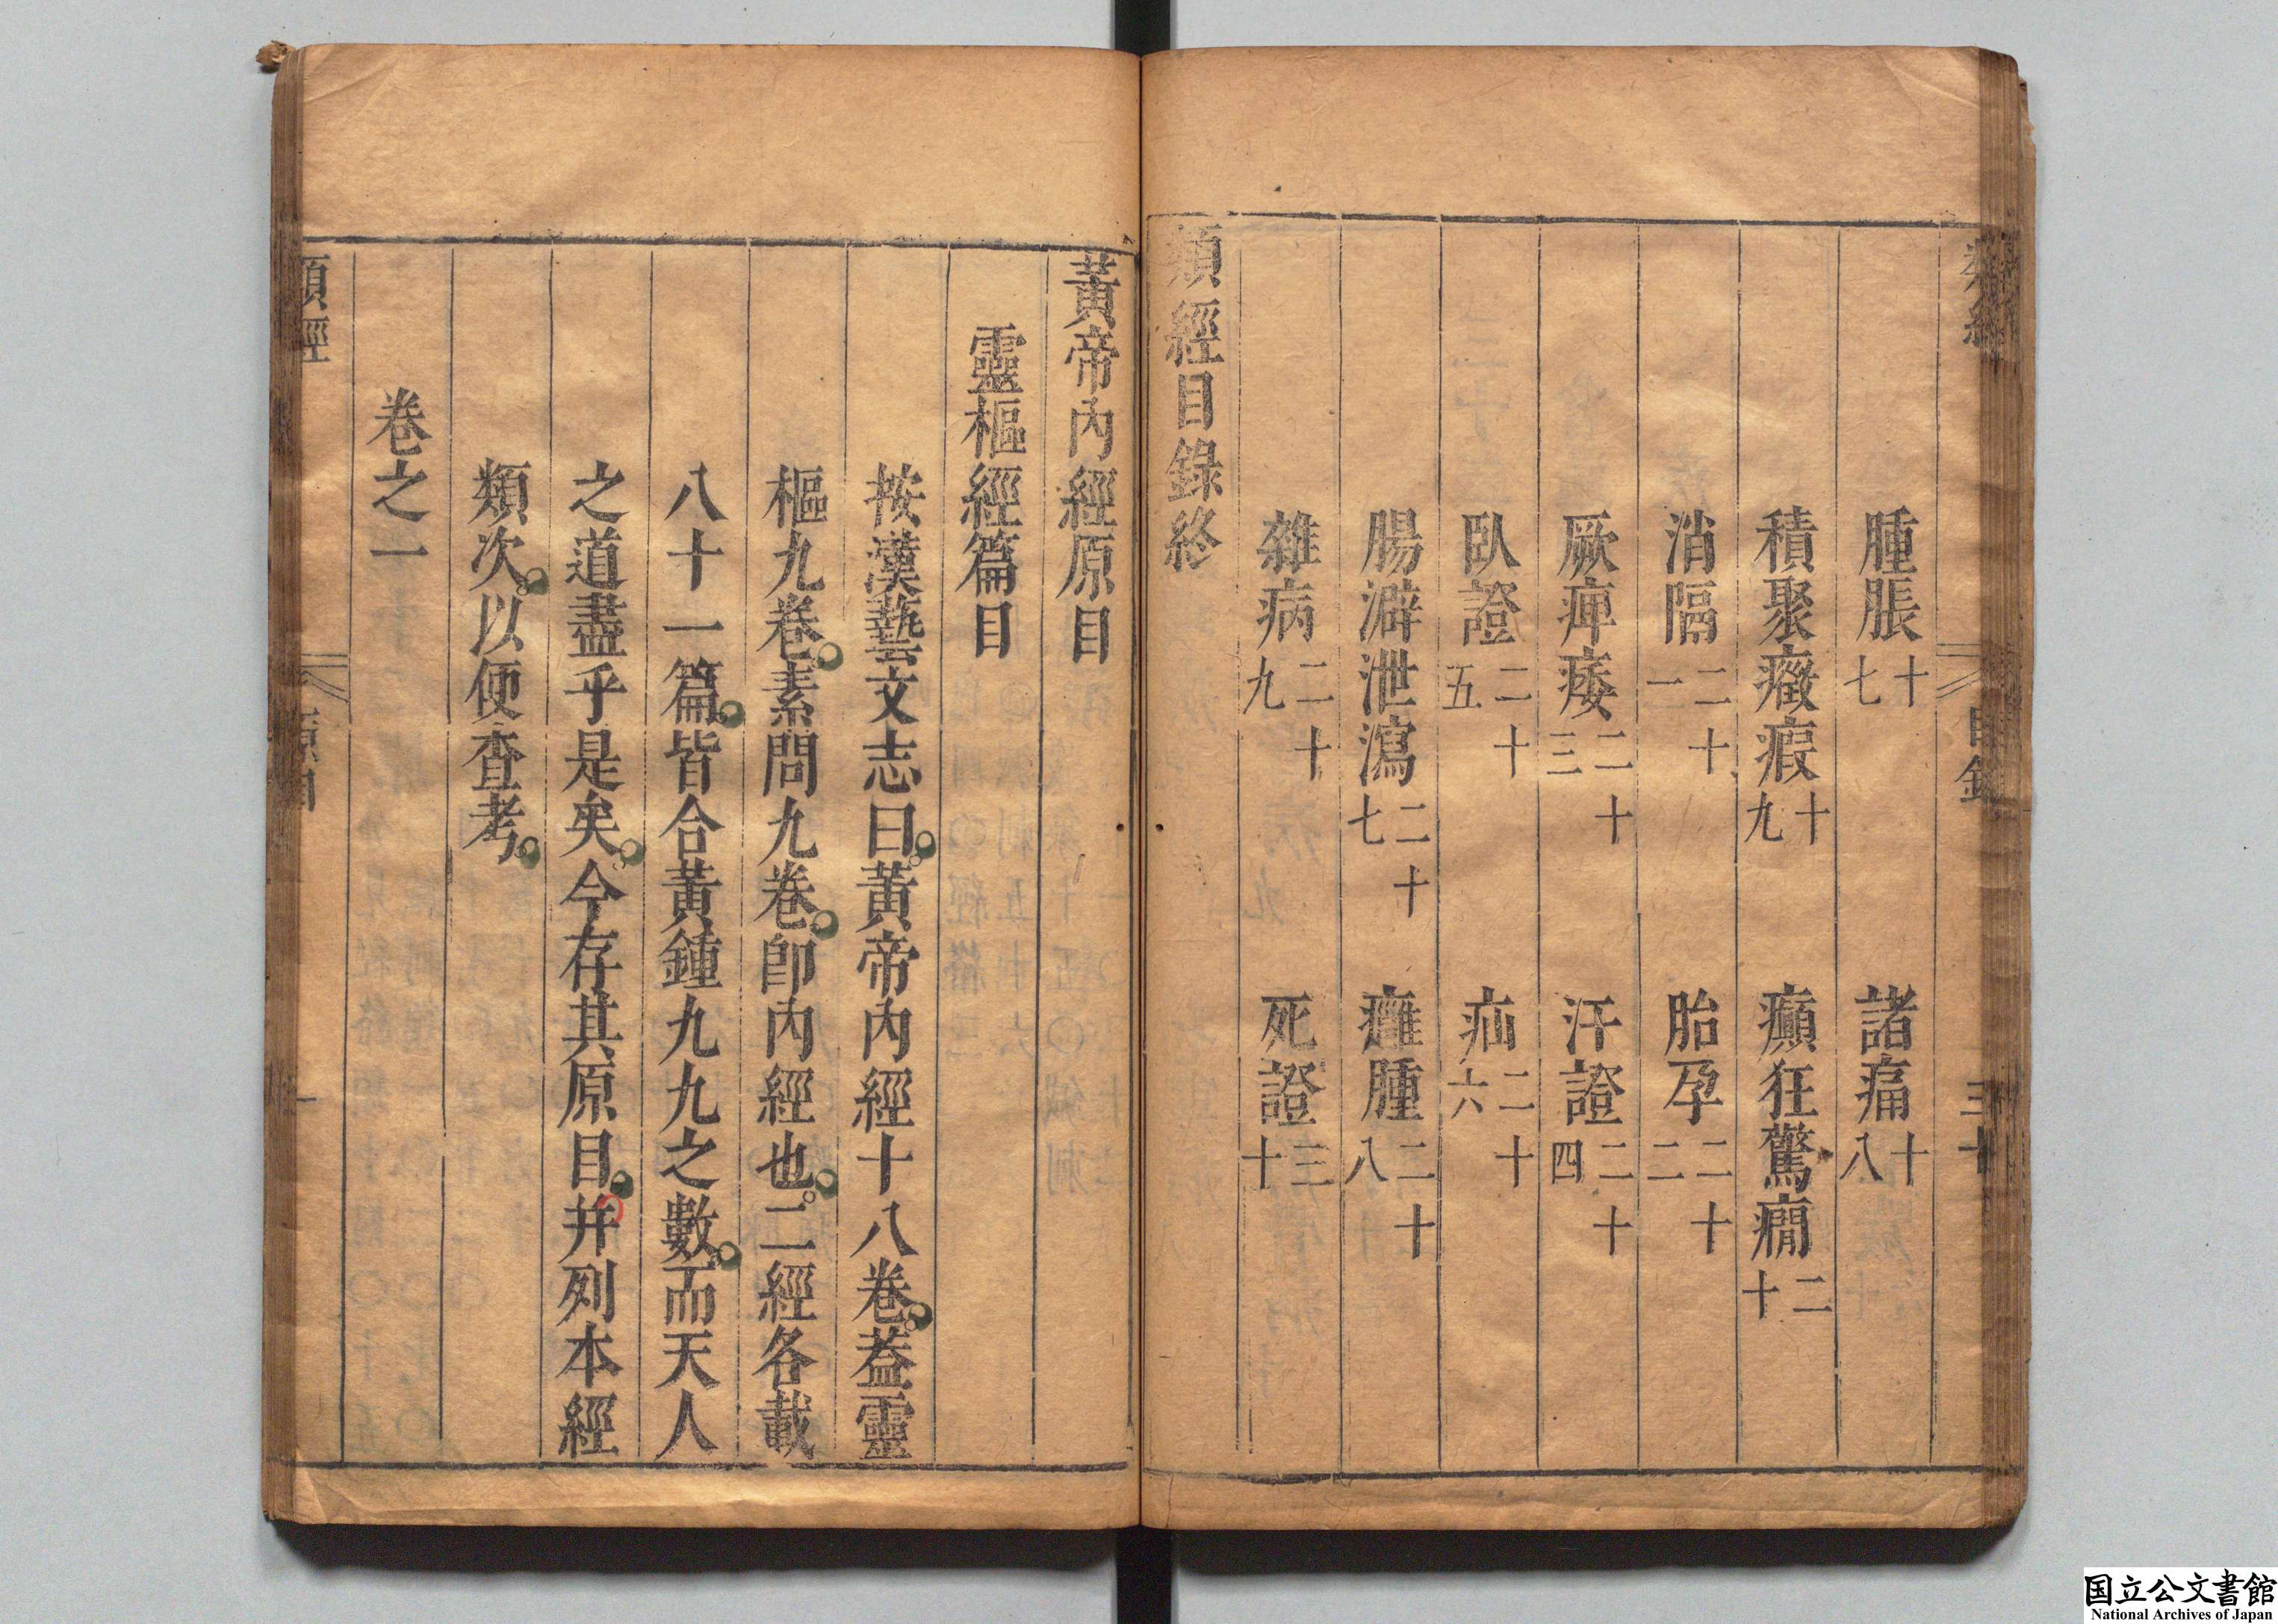 腫脹十七　諸痛十八
積聚癥瘕十九　癲狂驚癇二十
消隔二十一　胎孕二十二
厥痺痿二十三　汗證二十四
臥證二十五　疝二十六
腸澼泄瀉二十七　癰腫二十八
雜病二十九　死證三十
類經目錄終
黃帝內經原目
靈樞經篇目
按漢藝文志曰黃帝內經十八卷葢靈
樞九卷素問九卷卽內經也二經各載
八十一篇皆合黃鍾九九之數而天人
之道盡乎是矣今存其原目幷列本經
類次以便查考
卷之一
類經　原目　一
国立公文書館
National Archives of Japan